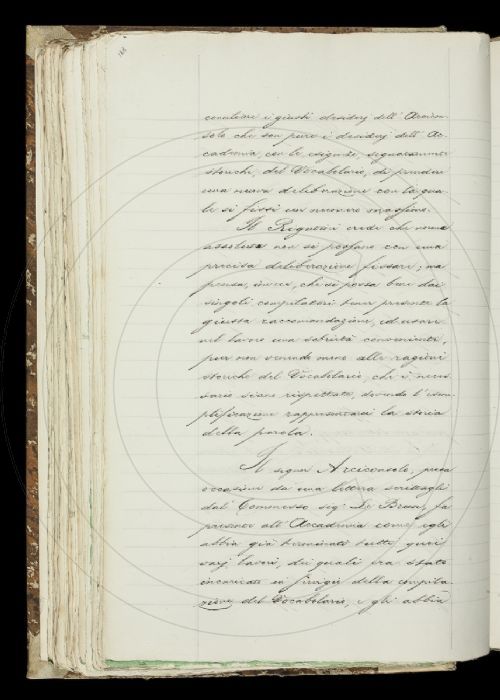 conciliare i giusti desiderj dell' Arcicon-
solo che son pure i desiderj dell' Ac-
cademia, con le esigenze, segnatamente
storiche, del Vocabolario, di prendere
una nuova deliberazione con la qua-
le si fissi un numero
Il Rigutini crede che norme
assolute non si possano con una
precisa deliberazione fissare, ma
pensa, invece, che si possa bene dai
singoli compilatori tener presente la
giusta raccomandazione, ed usare
nel lavoro una sobrietà conveniente,
pur non venendo meno alle ragioni
storiche del Vocabolario, che è neces-
sario sieno rispettate, dovendo l'esem-
plificazione rappresentarci la storia
della parola.
Il signor Arciconsolo, presa
occasione da una lettera scrittagli
dal Commesso sig. Del Bruno, fa
presente all' Accademia come egli
abbia già terminato tutti quei
varj lavori, dei quali era stato
incaricato in servigio della compila-
zione del Vocabolario, e gli abbia